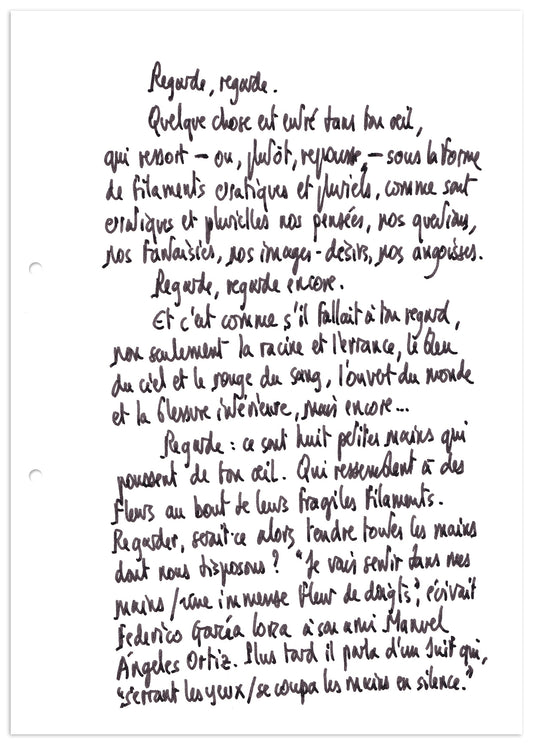 Regarde, regarde.
Quelque chose est entré dans ton œil,
qui ressort — ou, plutôt, repousse, — sous la forme
de filaments erratiques et pluriels, comme sont
erratiques et plurielles nos pensées, nos questions,
nos fantaisies, nos images-désirs, nos angoisses.
Regarde, regarde encore.
Et c'est comme s'il fallait à ton regard,
non seulement la racine et l'errance, le bleu
du ciel et le rouge du sang, l'ouvert du monde
et la blessure intérieure, mais encore...
Regarde : ce sont huit petites mains qui
poussent de ton œil. Qui ressemblent à des
fleurs au bout de leurs fragiles filaments.
Regarder, serait-ce alors tendre toutes les mains
dont nous disposons ? "Je vais sentir dans mes
mains / une immense fleur de doigts", écrivait
Federico García Lorca à son ami Manuel
Ángeles Ortiz. Plus tard il parla d'un Juif qui,
"serrant les yeux / se coupa les mains en silence."